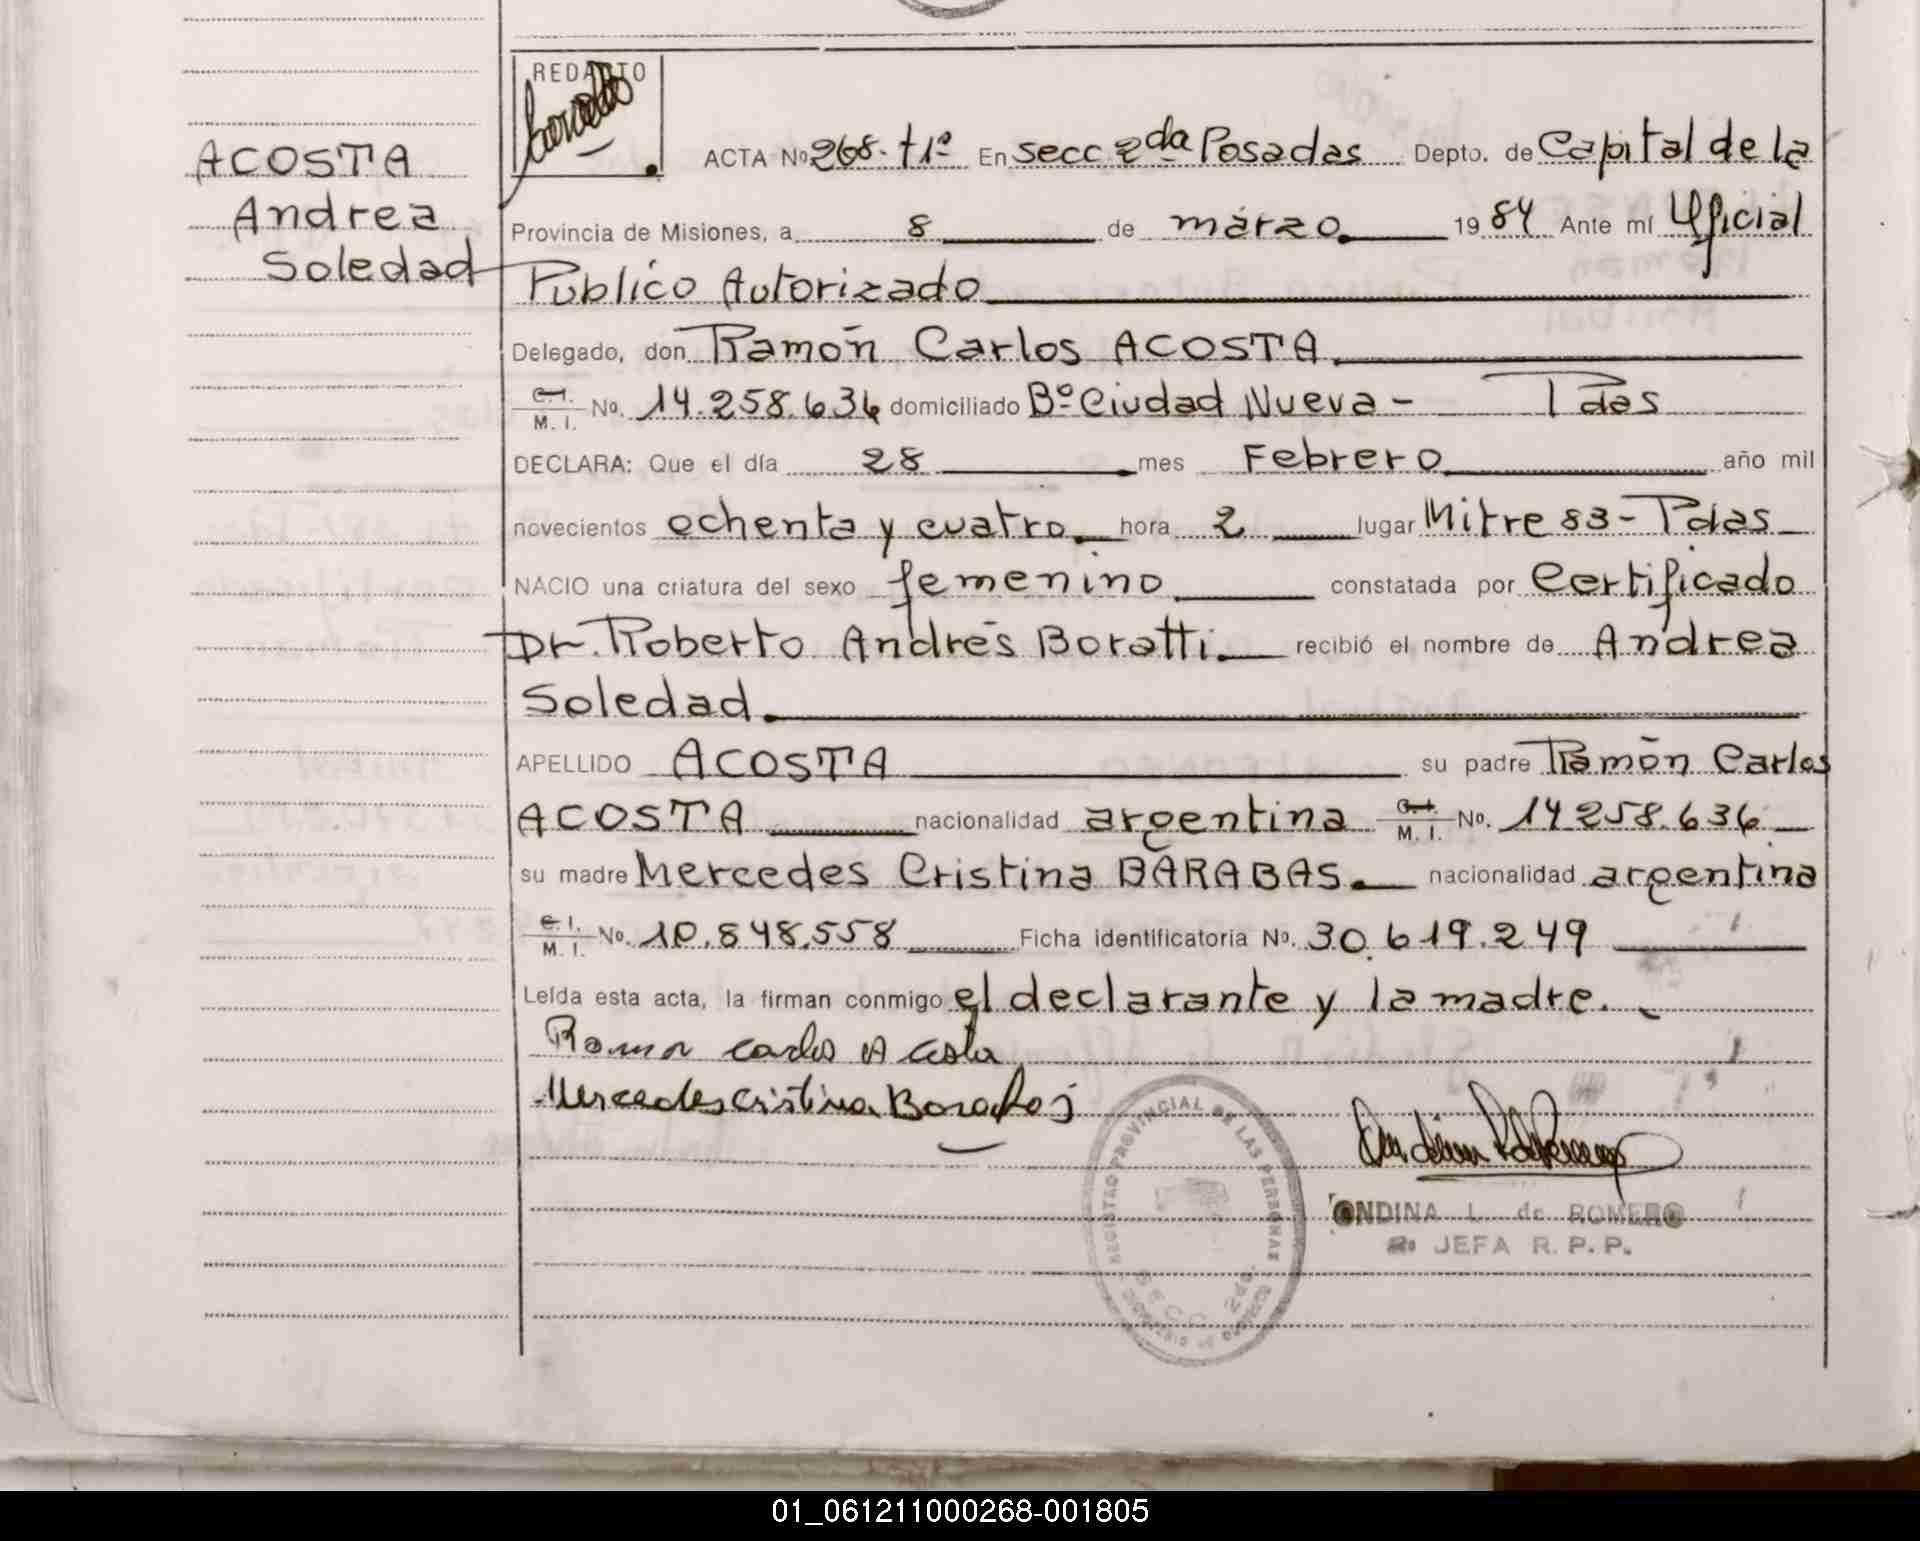 ACOSTA
Andrea
Soledad
REDACTO
ACTA Nº 268. tº1º En secc 2da Posadas Depto. de Capital de la
Provincia de Misiones, a 8 de márzo 1984 Ante mí Oficial
Publico Autorizado
Delegado, don Ramón Carlos ACOSTA
C.I. M. I. No. 14.258.636 domiciliado Bº Ciudad Nueva - Pdas
DECLARA: Que el día 28 mes Febrero año mil
novecientos ochenta y cuatro hora 2 lugar Mitre 83 - Pdas
NACIO una criatura del sexo femenino constatada por Certificado
Dr. Roberto Andrés Boratti recibió el nombre de Andrea
Soledad
APELLIDO ACOSTA su padre Ramón Carlos
ACOSTA nacionalidad argentina C.I. M. I. No. 14.258.636
su madre Mercedes Cristina BARABAS nacionalidad argentina
C.I. M. I. No. 10.848.558 Ficha identificatoria No. 30.619.249
Leída esta acta, la firman conmigo el declarante y la madre.
Ramon Carlos Acosta
Mercedes Cristina Barabas
REGISTRO PROVINCIAL DE LAS PERSONAS
SECC 2da.
ONDINA L. de ROMERO
JEFA R. P. P.
01_061211000268-001805